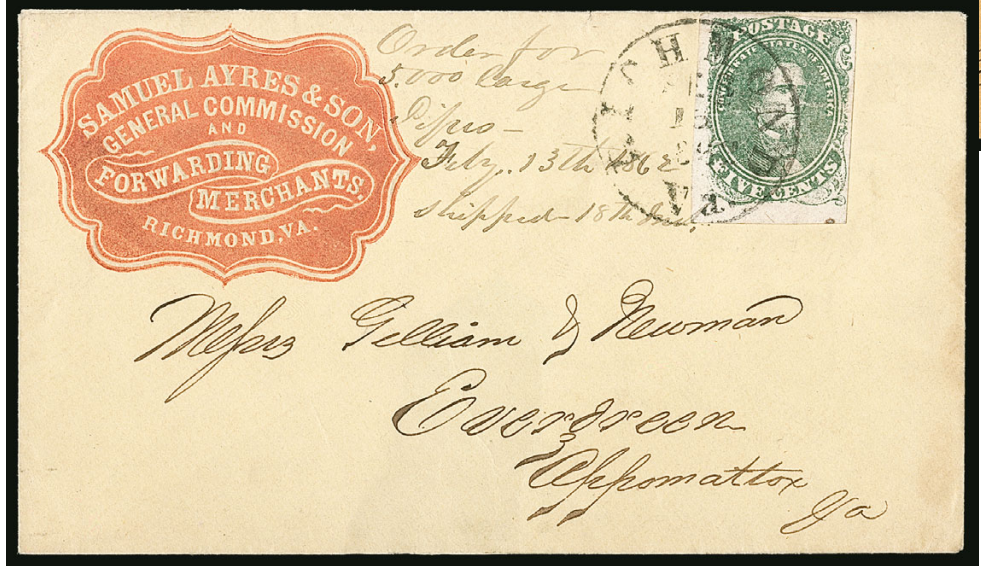 SAMUEL AYRES & SON,
GENERAL COMMISSION
AND
FORWARDING
MERCHANTS.
RICHMOND, VA.
Order for
5.000 large
Feby. 13th 1862
shipped 18th
POSTAGE
CONFEDERATE STATES OF AMERICA
FIVE CENTS
RICHMOND
VA
Messrs Gilliam & Newman
Evergreen
Appomattox
Va